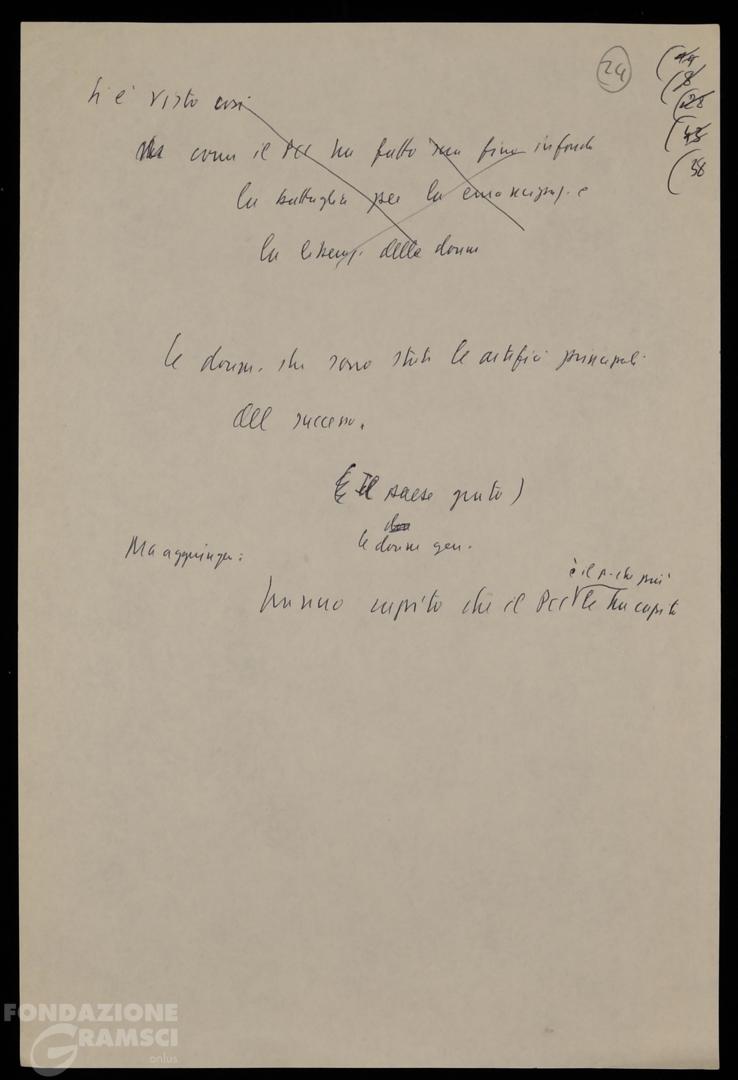 24
44
8
28
45
38
Si è visto così
come il PCI ha fatto sua fino in fondo
la battaglia per la emancipaz. e
la liberaz. delle donne
le donne, che sono state le artefici principali
del successo.
(E Il paese grato)
le donne gen.
Ma aggiunger:
è il p. che più
hanno capito che il PCI le ha capite
FONDAZIONE
GRAMSCI
onlus